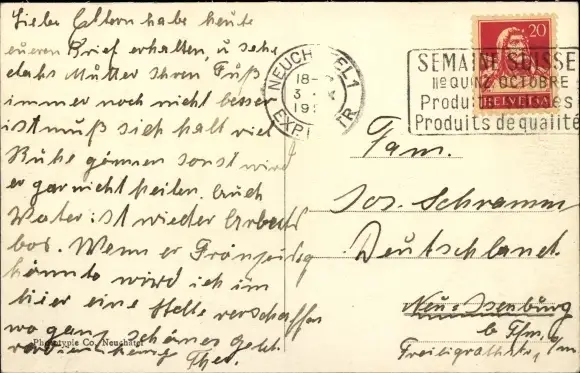 Liebe Eltern habe heute
eueren Brief erhalten, u sehe
dahs Mutter Ihren Fuß
immer noch nicht besser
ist muß sich halt viel
Ruhe gönnen sonst wird
er gar nicht heilen. Auch
Vater ist wieder Arbeits
los. Wenn er Französig
könnte wird ich im
hier eine Stelle verschaffen
wo ganz schönes Geld
Theo.
Phototypie Co. Neuchâtel
NEUCHATEL 1
18-
3 X
19
EXP. LTR
SEMAINE SUISSE
IIe QUINZ. OCTOBRE
Produits
Produits de qualité
20
HELVETIA
Fam.
Jos. Schramm
Deutschland.
Neu-Isenburg
b Ffm.
Freiligrathstr.